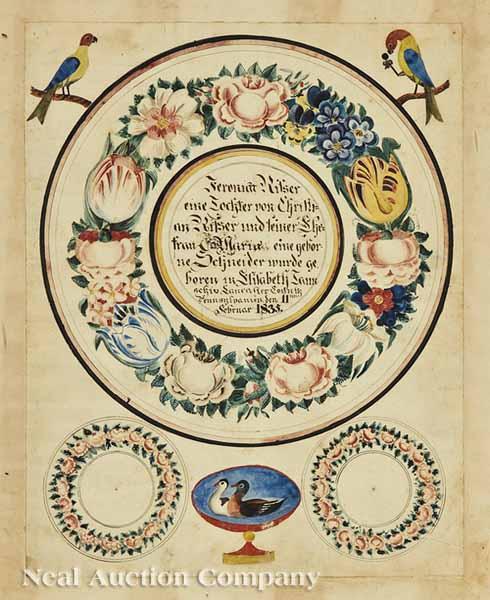 Feronica Nißer
eine Tochter von Christi-
an Nißer und seiner Ehe
frau Maria eine gebor
ne Schneider wurde ge
boren in Elisabeth Taun
schip Lancaster Counth
Pennsylvania, den 11ten
Februar 1835.
Neal Auction Company